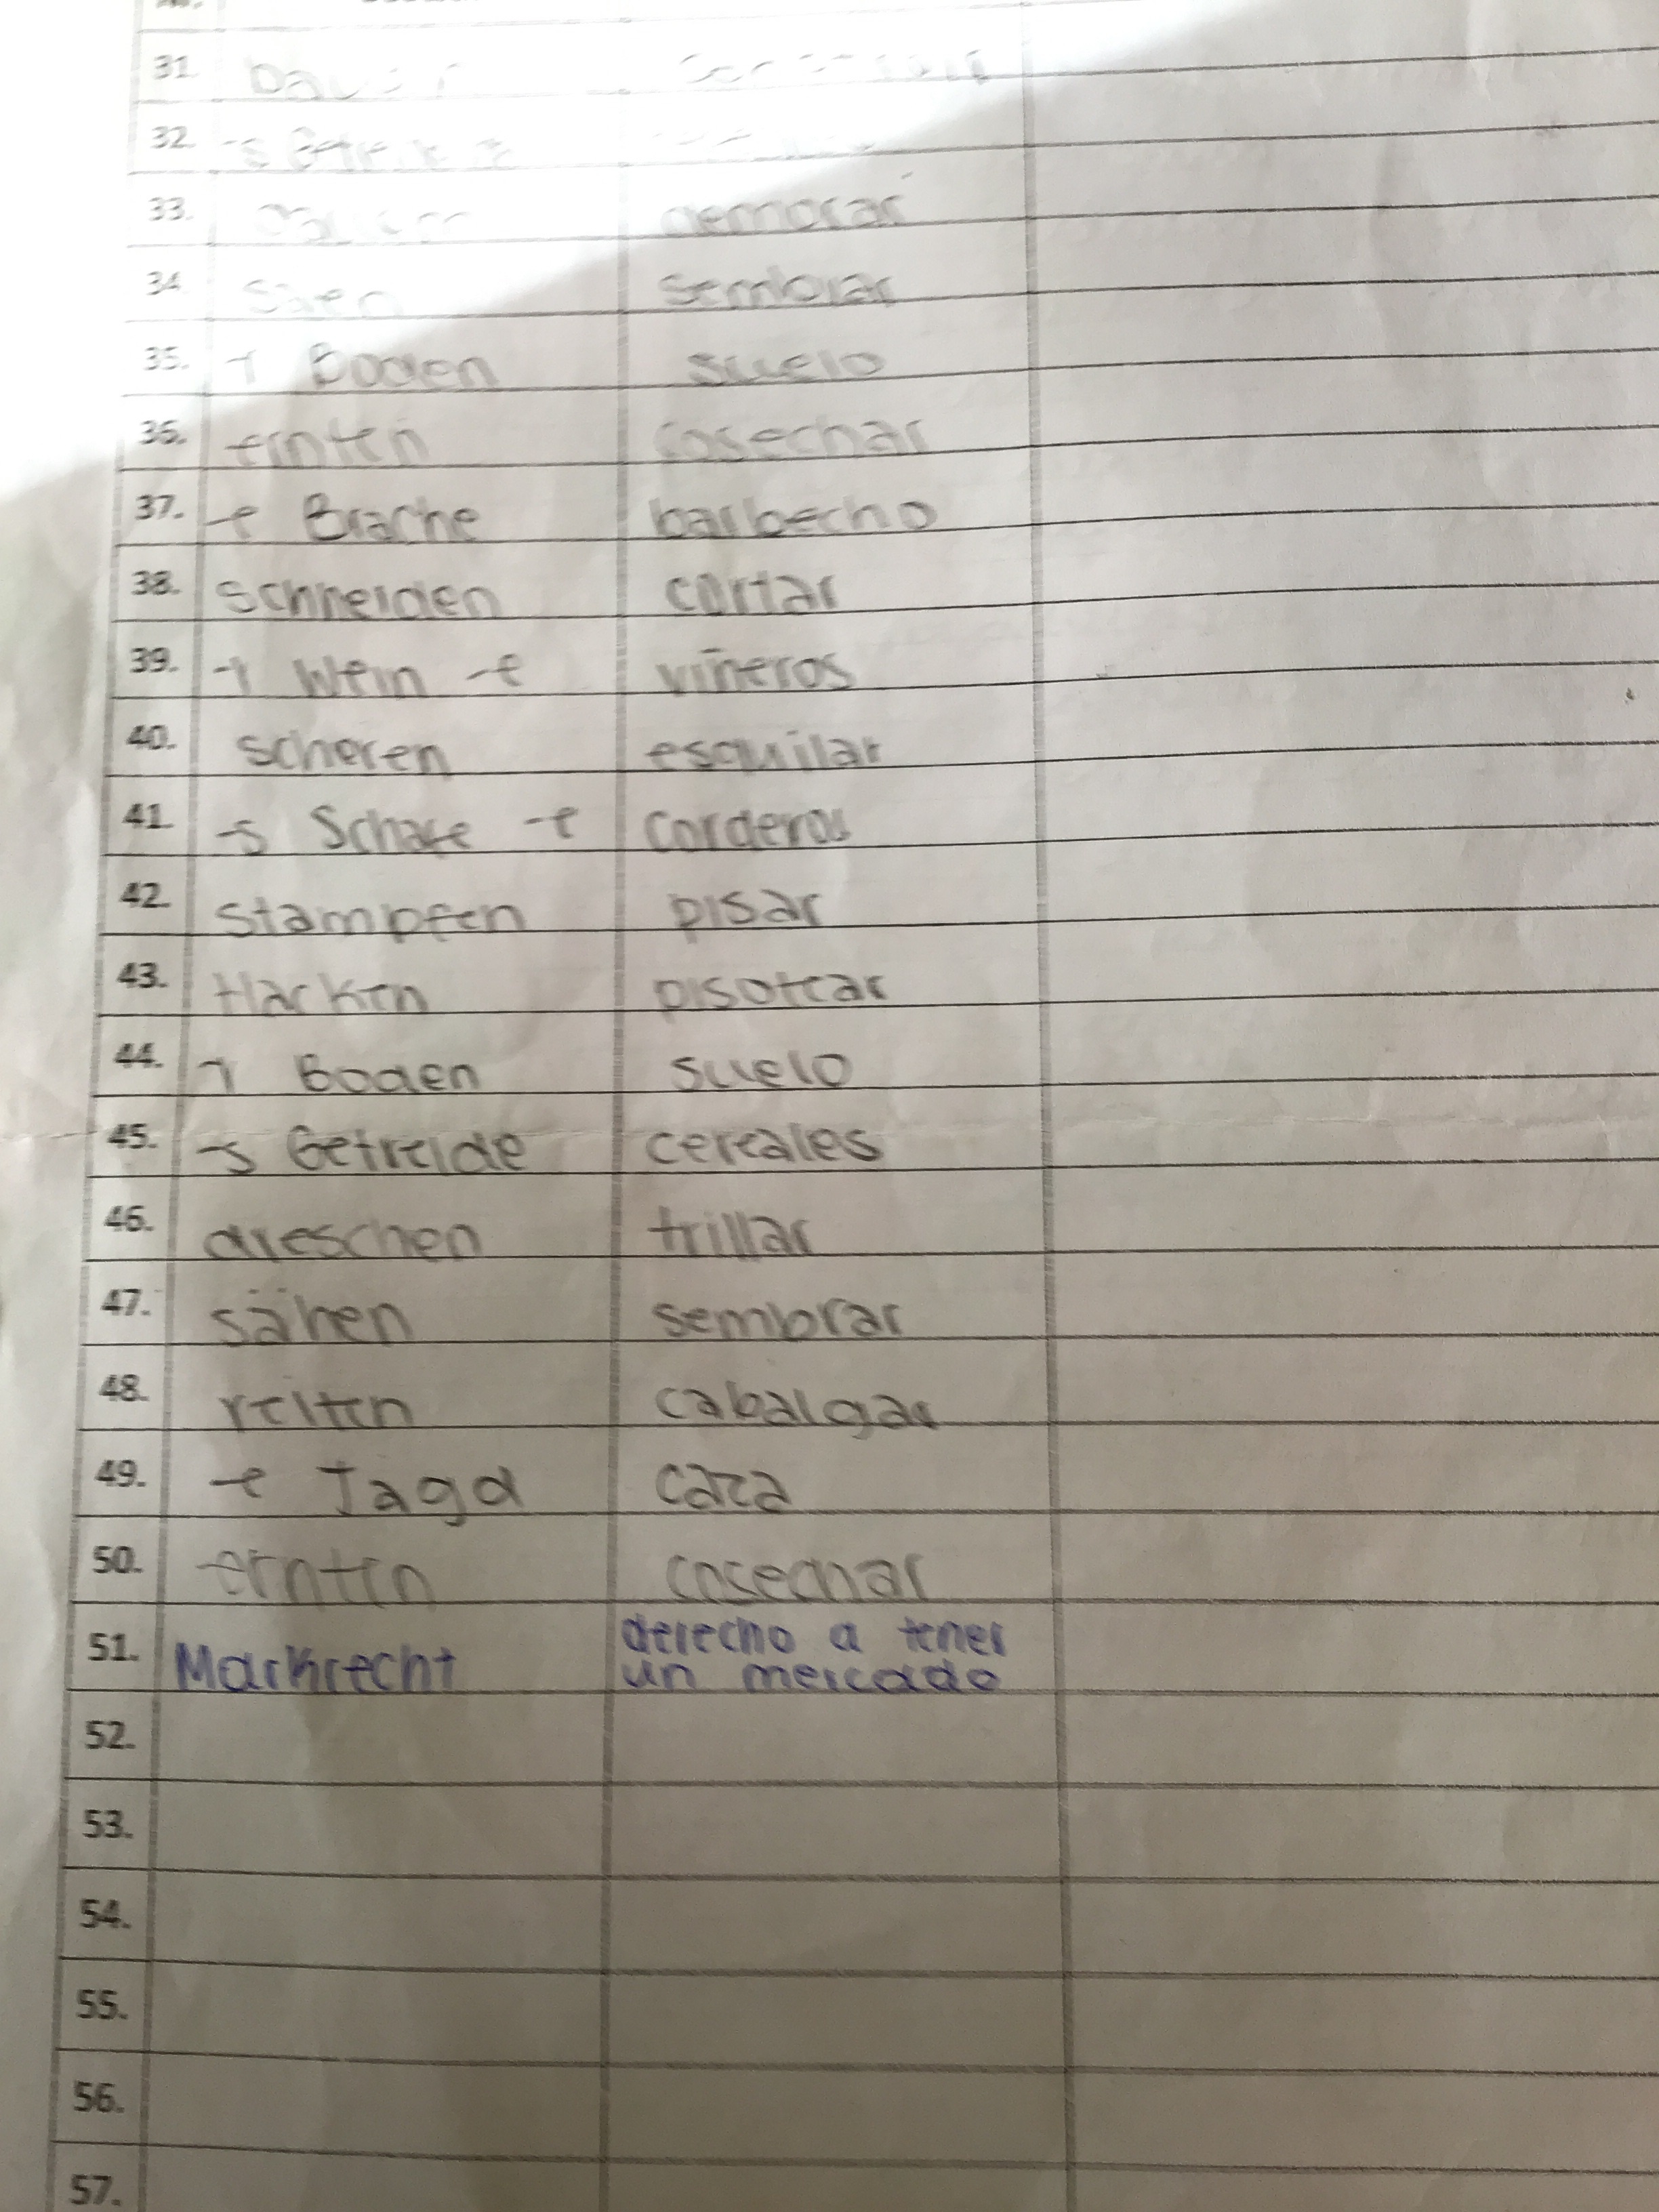 31.
32.
33. demorar
34. säen sembrar
35. -r Boden suelo
36. ernten cosechar
37. -e Brache barbecho
38. schneiden cortar
39. -r Wein -e viñeros
40. scheren esquilar
41. -s Schafe -e corderos
42. stampfen pisar
43. Hacken pisotear
44. -r Boden suelo
45. -s Getreide cereales
46. dreschen trillar
47. sähen sembrar
48. reiten cabalgar
49. -e Jagd caza
50. ernten cosechar
51. Markrecht derecho a tener
un mercado
52.
53.
54.
55.
56.
57.